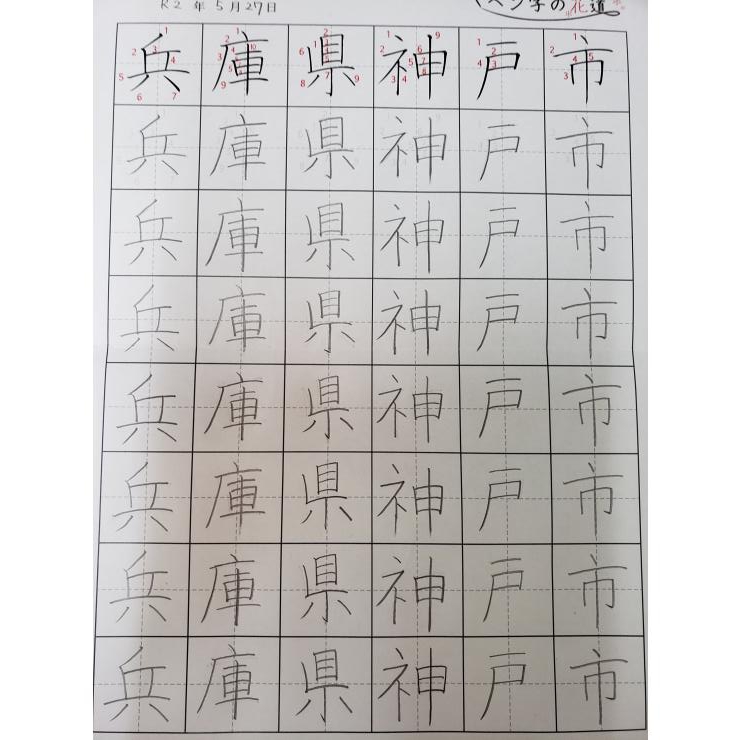 R2 年 5月27日
ペン字の花道
兵庫県神戸市
兵庫県神戸市
兵庫県神戸市
兵庫県神戸市
兵庫県神戸市
兵庫県神戸市
兵庫県神戸市
兵庫県神戸市